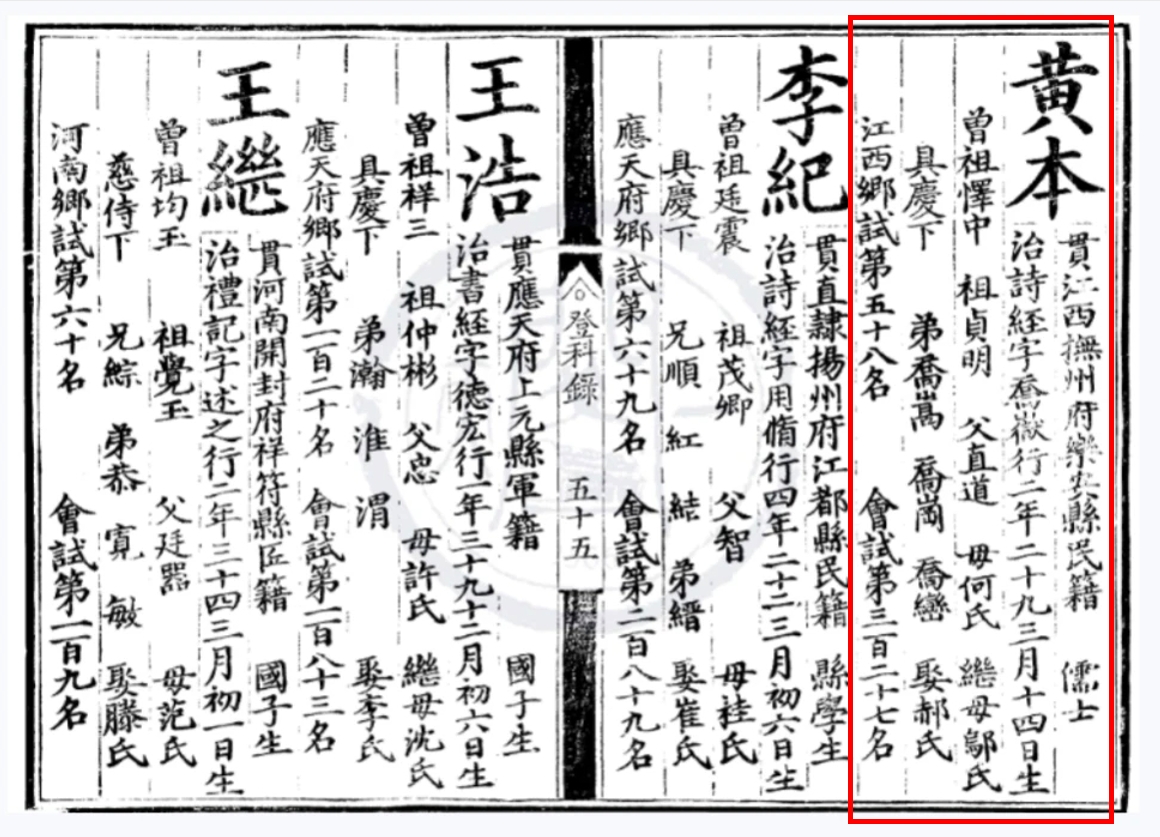 黄本
貫江西撫州府樂安縣民籍 儒士
治詩經字喬嶽行二年二十九三月十四日生
曾祖懌中 祖貞明 父直道 母何氏 繼母鄔氏
具慶下 弟喬嵩 喬崗 喬巒 娶郝氏
江西鄉試第五十八名 會試第三百二十七名
李紀
貫直隸揚州府江都縣民籍 縣學生
治詩經字用脩行四年二十二三月初六日生
曾祖廷震 祖茂卿 父智 母袿氏
具慶下 兄順 紅 結 弟縉 娶崔氏
應天府鄉試第六十九名 會試第二百八十九名
登科錄 五十五
王浩
貫應天府上元縣軍籍 國子生
治書經字德宏行一年三十九十二月初六日生
曾祖祥三 祖仲彬 父忠 母許氏 繼母沈氏
具慶下 弟瀚 淮 渭 娶李氏
應天府鄉試第一百二十名 會試第一百八十三名
王繼
貫河南開封府祥符縣匠籍 國子生
治禮記字述之行二年三十四三月初一日生
曾祖均玉 祖覺玉 父廷器 母范氏
慈侍下 兄綜 弟恭 寬 敏 娶滕氏
河南鄉試第六十名 會試第一百九名